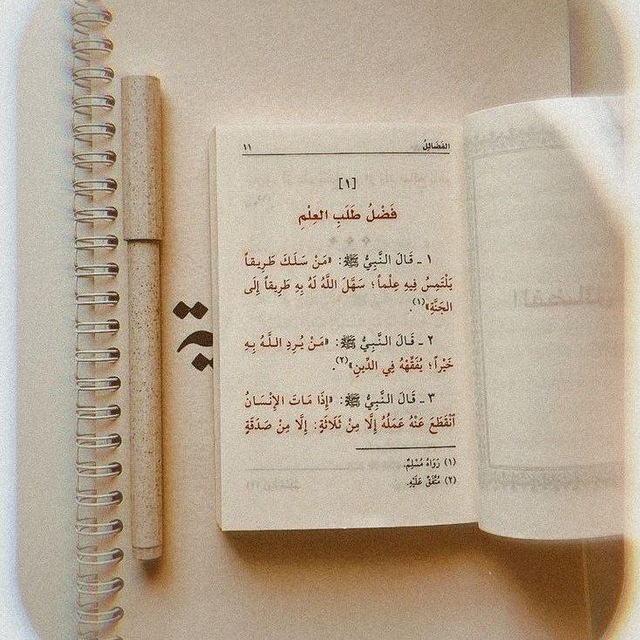 الفَضَائِلُ ١١
[١]
فَضْلُ طَلَبِ العِلْمِ
١ ـ قَالَ النَّبِيُّ ﷺ: «مَنْ سَلَكَ طَرِيقاً
يَلْتَمِسُ فِيهِ عِلْماً؛ سَهَّلَ اللَّهُ لَهُ بِهِ طَرِيقاً إِلَى
الجَنَّةِ»(١).
٢ ـ قَالَ النَّبِيُّ ﷺ: «مَنْ يُرِدِ اللَّهُ بِهِ
خَيْراً؛ يُفَقِّهْهُ فِي الدِّينِ»(٢).
٣ ـ قَالَ النَّبِيُّ ﷺ: «إِذَا مَاتَ الإِنْسَانُ
ٱنْقَطَعَ عَنْهُ عَمَلُهُ إِلَّا مِنْ ثَلَاثَةٍ: إِلَّا مِنْ صَدَقَةٍ
(١) رَوَاهُ مُسْلِمٌ.
(٢) مُتَّفَقٌ عَلَيْهِ.